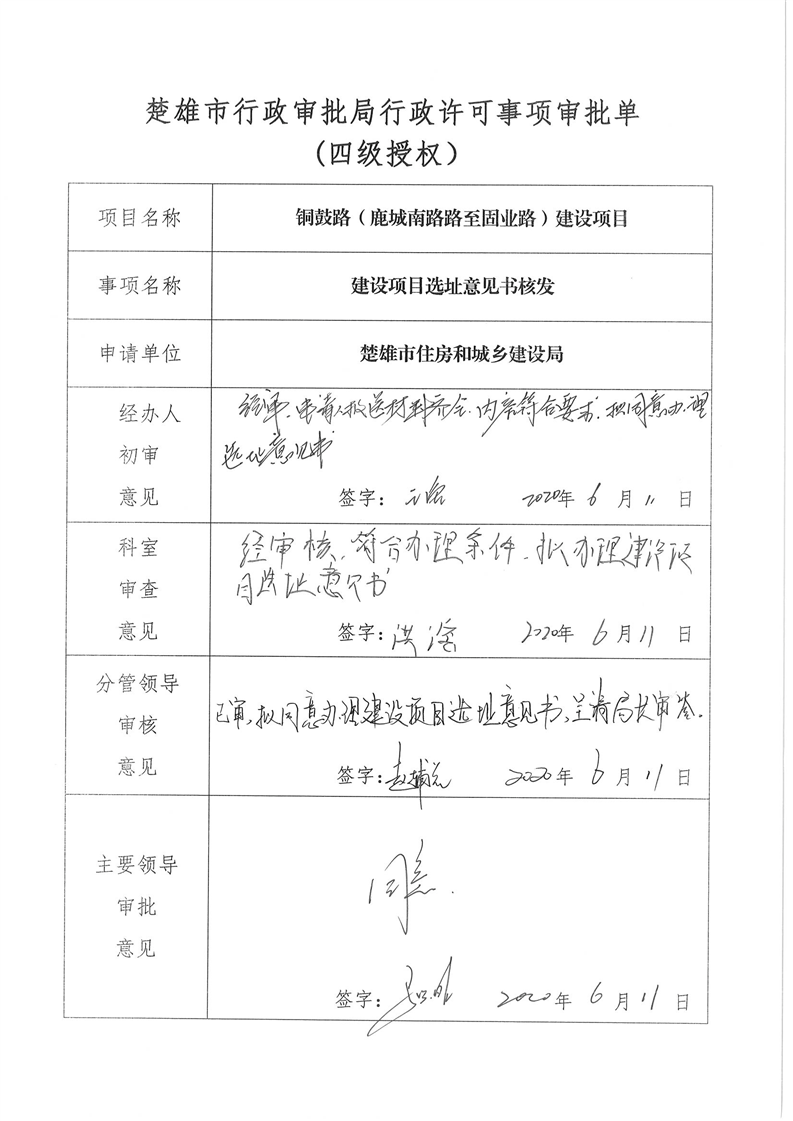 楚雄市行政审批局行政许可事项审批单
(四级授权)
项目名称
铜鼓路（鹿城南路路至固业路）建设项目
事项名称
建设项目选址意见书核发
申请单位
楚雄市住房和城乡建设局
经办人
初审
意见
经审、申请人报送材料齐全、内容符合要求、拟同意办理
选址意见书
签字: 2020年 6 月 11 日
科室
审查
意见
经审核、符合办理条件、拟办理建设项
目选址意见书
签字: 洪 2020年 6 月 11 日
分管领导
审核
意见
已审,拟同意办理建设项目选址意见书,呈请局长审签.
签字: 赵 2020年 6 月 11 日
主要领导
审批
意见
同意.
签字: 2020年 6 月 11 日